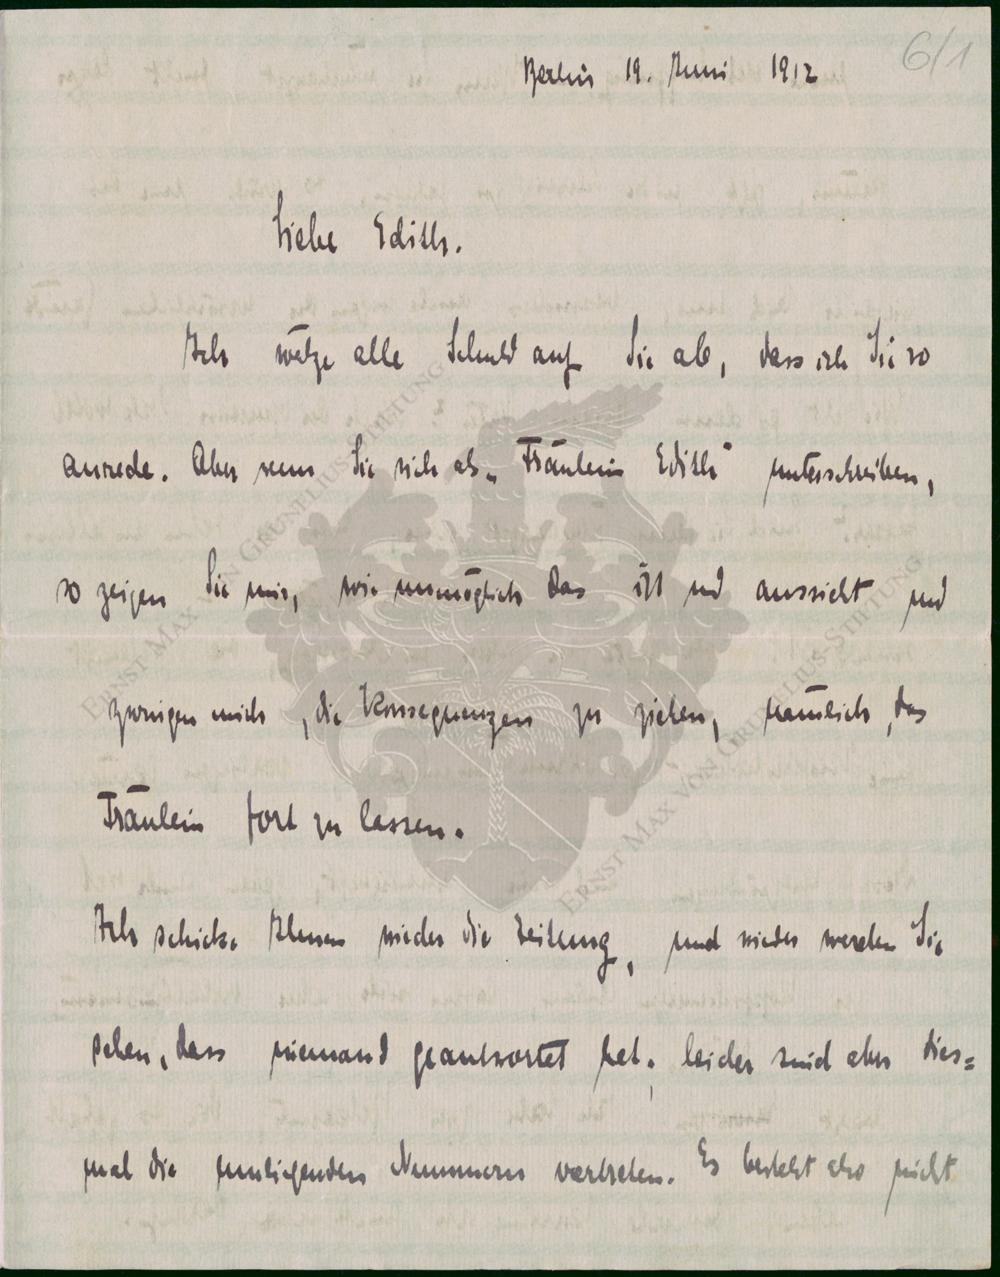 6/1
Berlin 19. Juni 1912
Liebe Edith.
Ich wälze alle Schuld auf Sie ab, dass ich Sie so
anrede. Aber wenn Sie sich als „Fräulein Edith" unterschreiben,
so zeigen Sie mir, wie unmöglich das ist und aussieht und
zwingen mich, die Konsequenzen zu ziehen, nämlich, das
Fräulein fort zu lassen.
Ich schicke Ihnen wieder die Zeitung, und wieder werden Sie
sehen, dass niemand geantwortet hat. leider sind aber dies=
mal die umliegenden Nummern vertreten. Es besteht also nicht
ERNST MAX VON GRUNELIUS-STIFTUNG
ERNST MAX VON GRUNELIUS-STIFTUNG